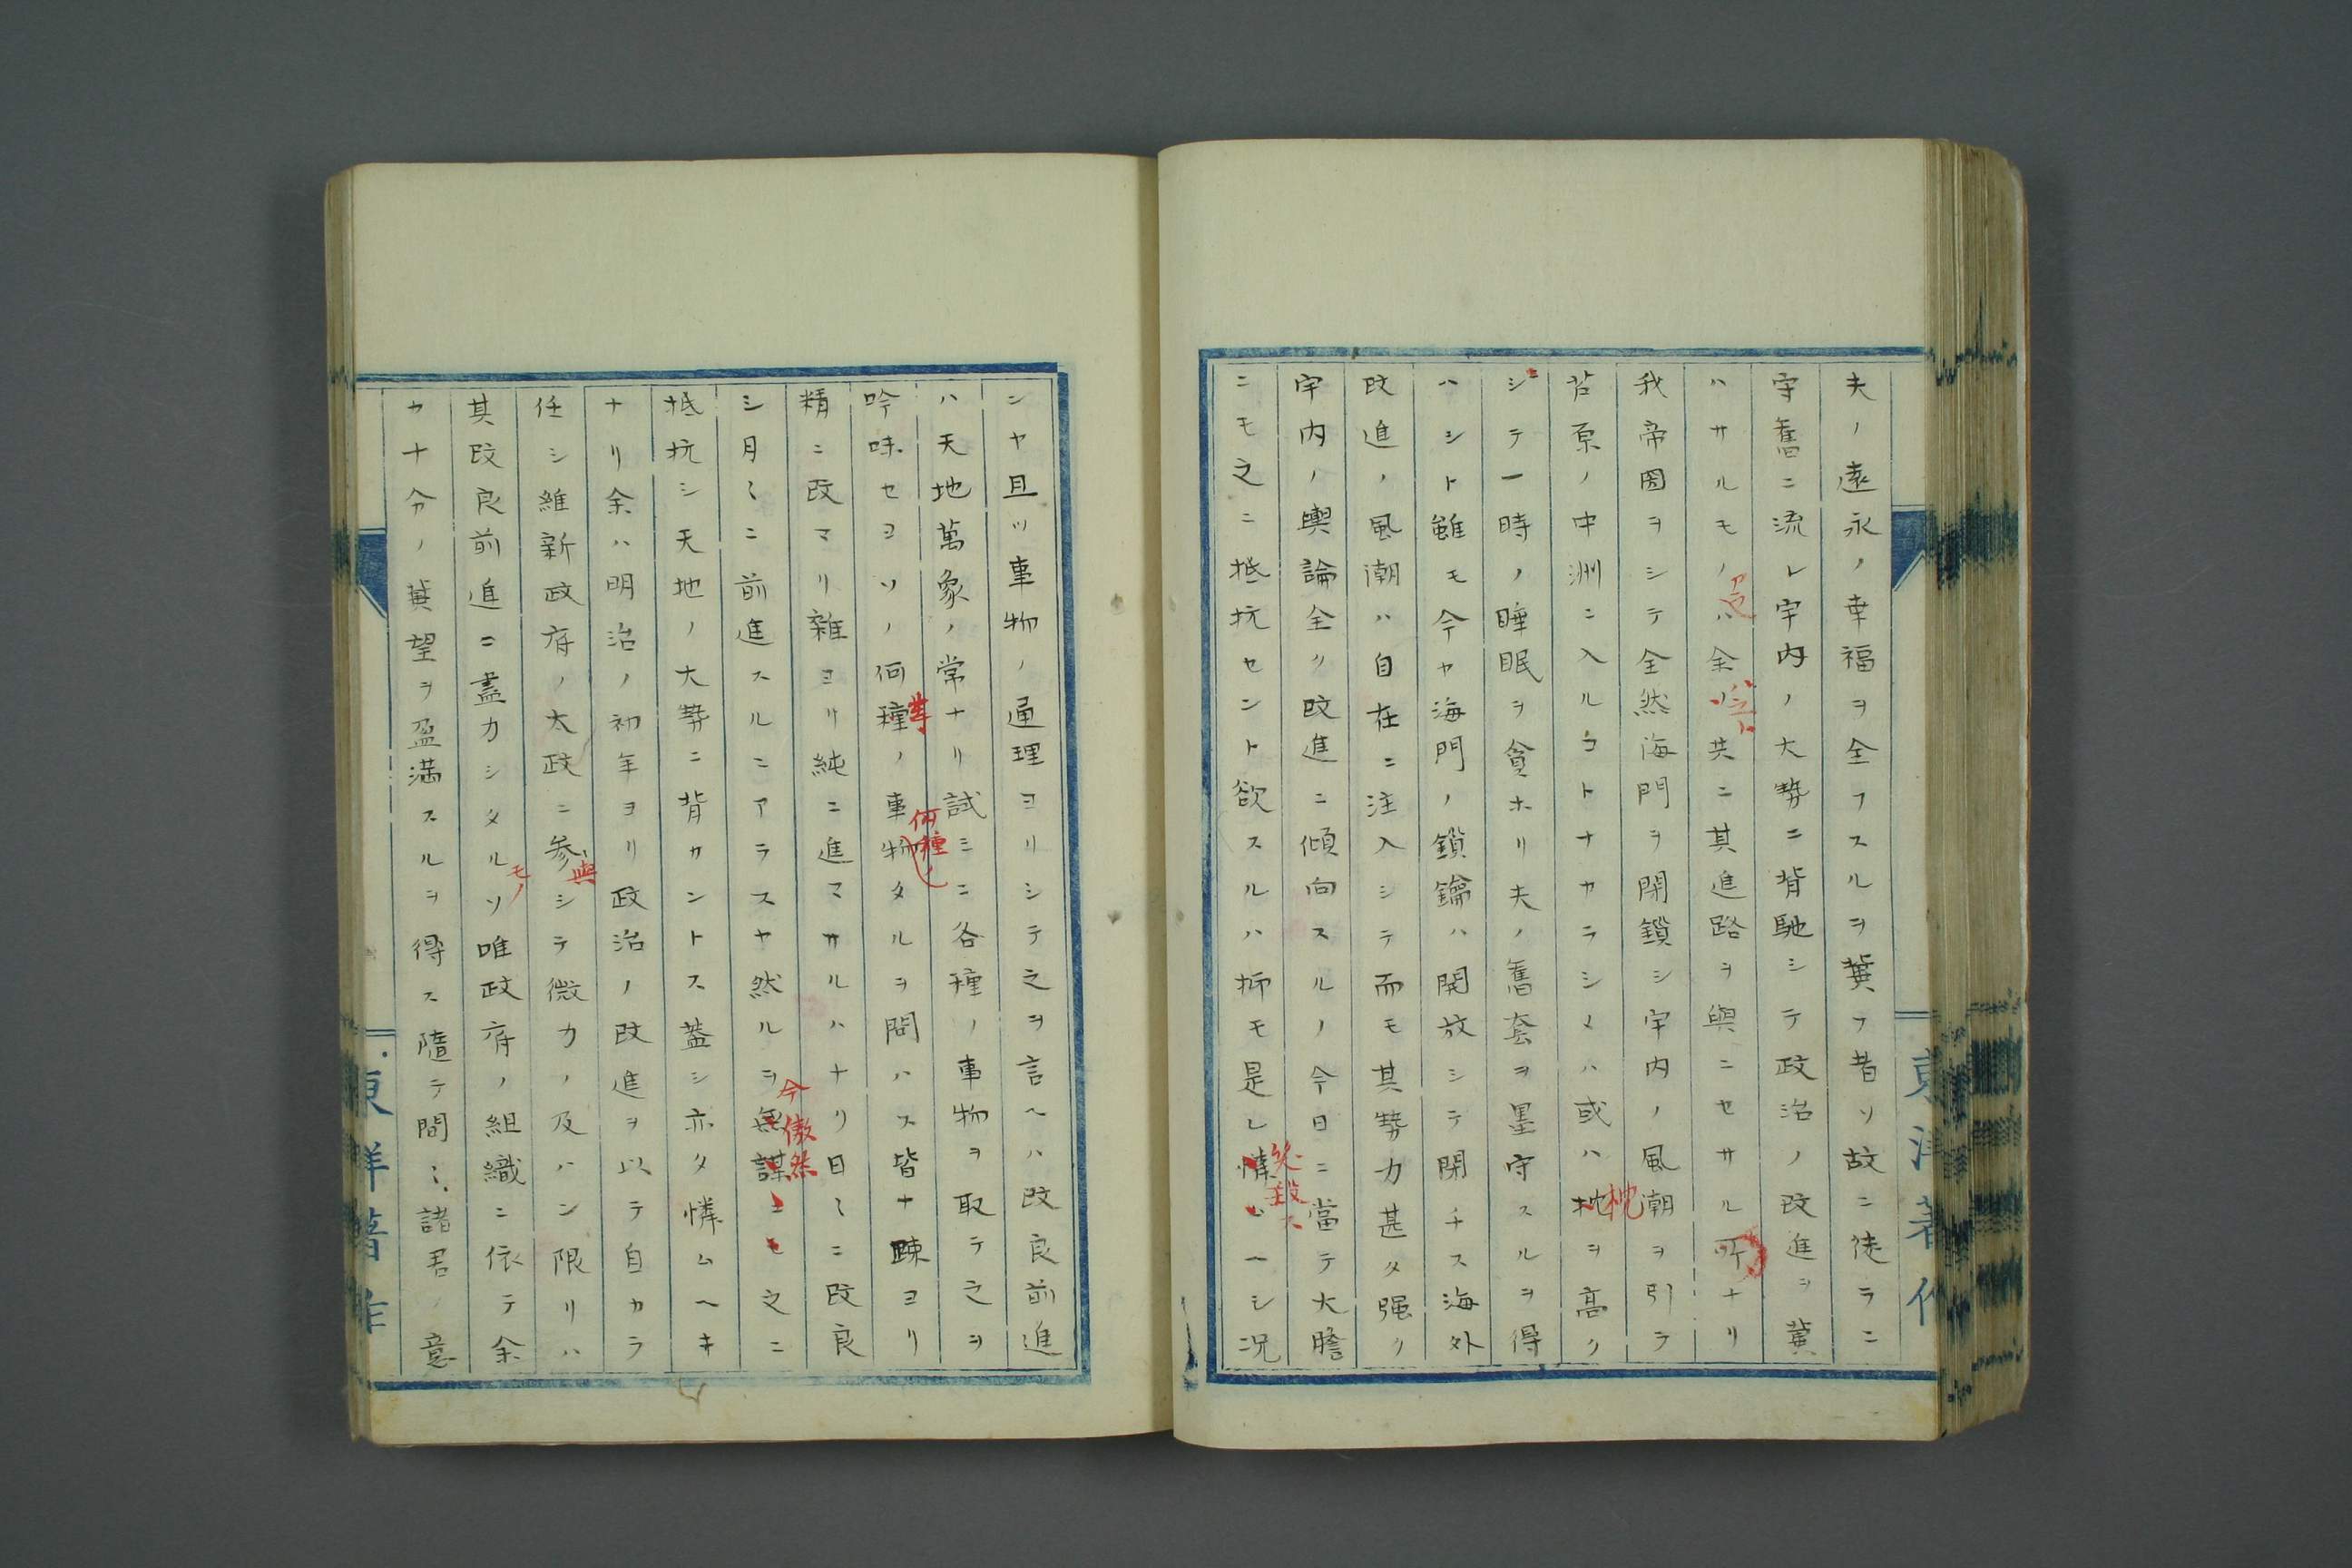 夫ノ遠永ノ幸福ヲ全フスルヲ冀フ者ソ故ニ徒ラニ
守舊ニ流レ宇内ノ大勢ニ背馳シテ政治ノ改進ヲ冀
ハサルモノハ余ハ共ニ其進路ヲ與ニセサル所ナリ
我帝國ヲシテ全然海門ヲ閉鎖シ宇内ノ風潮ヲ引テ
葦原ノ中洲ニ入ルコトナカラシメハ或ハ枕ヲ高ク
枕
シテ一時ノ睡眠ヲ貪ホリ夫ノ舊套ヲ墨守スルヲ得
ハシト雖モ今ヤ海門ノ鎖鑰ハ開放シテ閉チス海外
改進ノ風潮ハ自在ニ注入シテ而モ其勢力甚タ强ク
宇内ノ輿論全ク改進ニ傾向スルノ今日ニ當テ大膽
ニモ之ニ抵抗セント欲スルハ抑モ是レヘシ况
ンヤ且ツ事物ノ通理ヨリシテ之ヲ言ヘハ改良前進
ハ天地萬象ノ常ナリ試ミニ各種ノ事物ヲ取テ之ヲ
吟味セヨソノ何種ノ事物タルヲ問ハス皆ナ踈ヨリ
何種ノ
精ニ改マリ雜ヨリ純ニ進マサルハナリ日〻ニ改良
シ月〻ニ前進スルニアラスヤ然ルヲ無謀ニモ之ニ
今傲然
抵抗シ天地ノ大勢ニ背カントス蓋シ亦タ憐ムヘキ
ナリ余ハ明治ノ初年ヨリ政治ノ改進ヲ以テ自カラ
任シ維新政府ノ大政ニ参シテ微力ノ及ハン限リハ
與
其改良前進ニ盡力シタルソ唯政府ノ組織ニ依テ余
モノ
カ十分ノ冀望ヲ盈滿スルヲ得ス隨テ間〻諸君ノ意
東洋著作